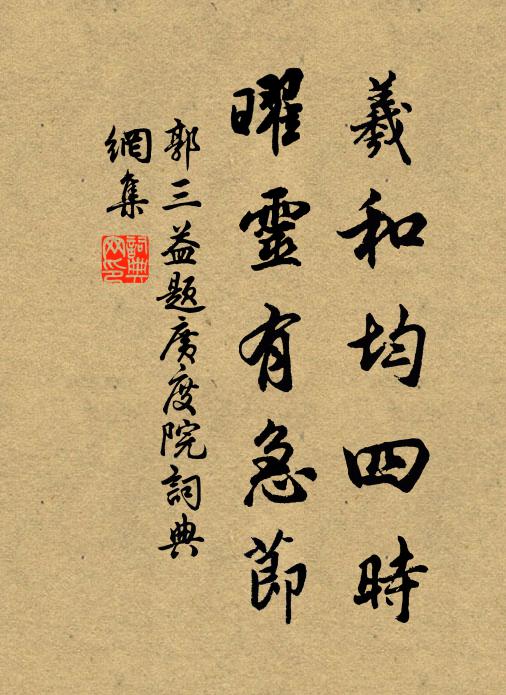 羲和均四時
曜靈有急節
郭三益題廣度院詞典
網集
詞典網印